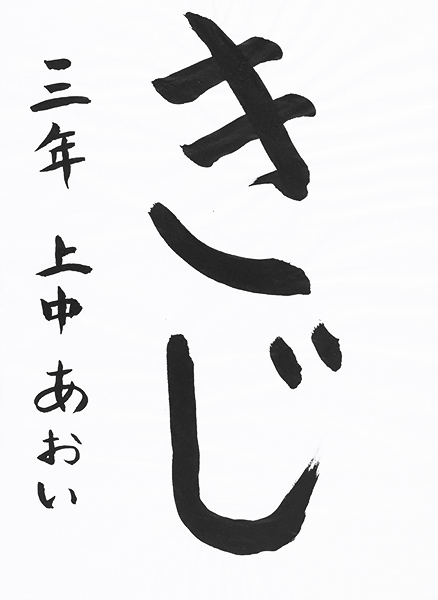 きじ
三年 上中あおい